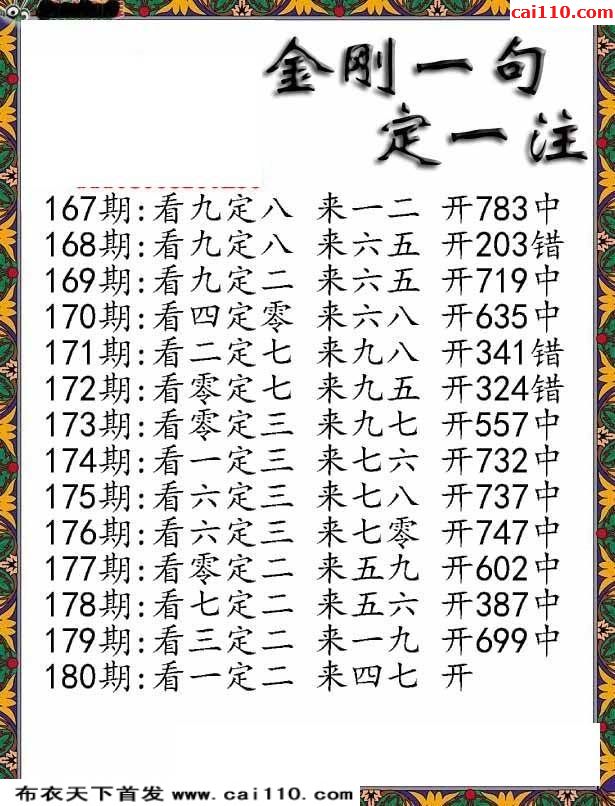 cai110.com
金刚一句
定一注
167期:看九定八 来一二 开783中
168期:看九定八 来六五 开203错
169期:看九定二 来六五 开719中
170期:看四定零 来六八 开635中
171期:看二定七 来九八 开341错
172期:看零定七 来九五 开324错
173期:看零定三 来九七 开557中
174期:看一定三 来七六 开732中
175期:看六定三 来七八 开737中
176期:看六定三 来七零 开747中
177期:看零定二 来五九 开602中
178期:看七定二 来五六 开387中
179期:看三定二 来一九 开699中
180期:看一定二 来四七 开
布衣天下首发 www.cai110.com